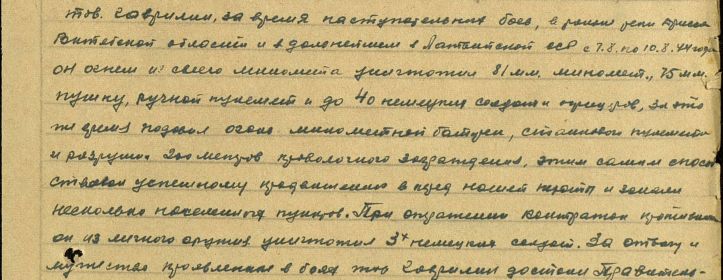 тов. Гаврилин, за время наступательных боев, в районе реки Дрисса
Витебской области и в дальнейшем в Латвийской ССР с 7.8. по 10.8.44 года
он огнем из своего миномета уничтожил 81 мм. миномет, 75 мм.
пушку, ручной пулемет и до 40 немецких солдат и офицеров, за это
же время подавил огонь минометной батареи, станкового пулемета
и разрушил 200 метров проволочного заграждения, этим самым способ
ствовал успешному продвижению в перед нашей пехоты и заняли
несколько населенных пунктов. При отражении контратак противника
он из личного оружия уничтожил 3х немецких солдат. За отвагу и
мужество проявленные в боях тов Гаврилин достоин Правитель-